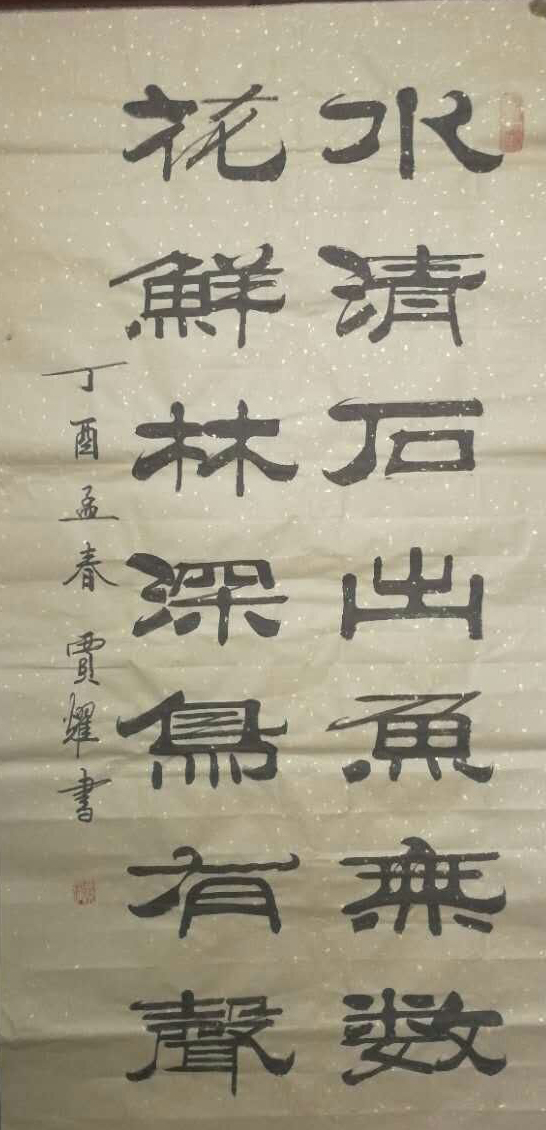 水清石出魚無数
花鮮林深鳥有聲
丁酉孟春賈耀書